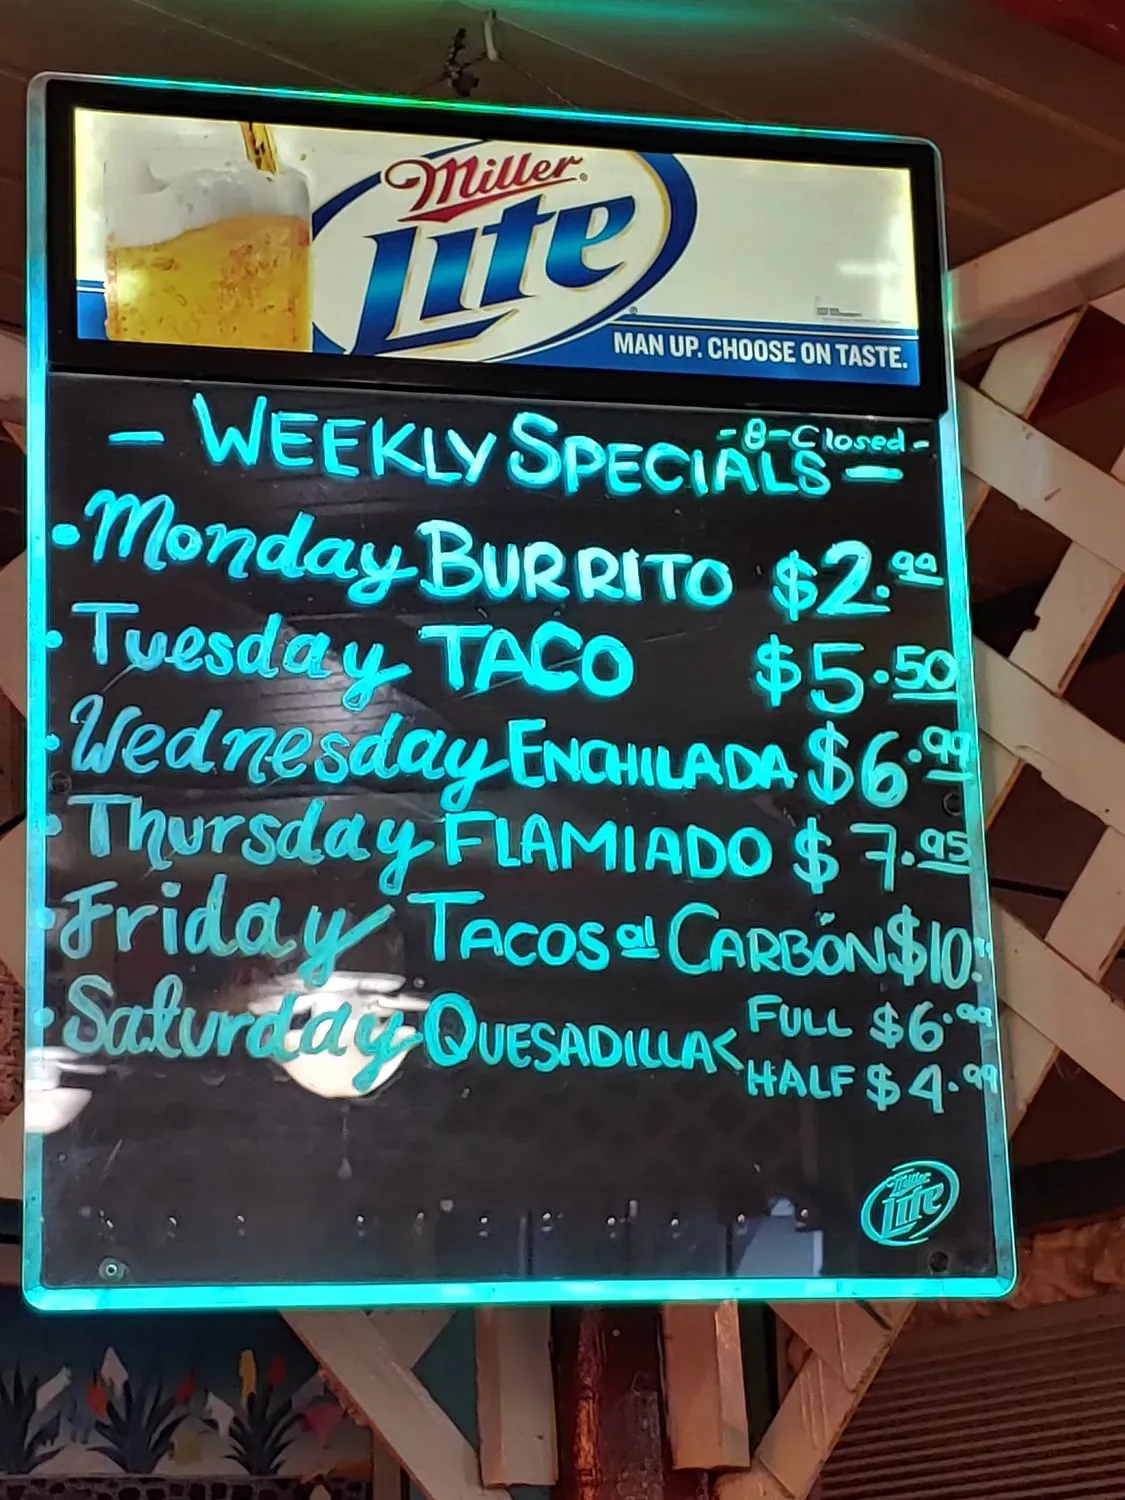 Miller
Lite
MAN UP. CHOOSE ON TASTE.
- WEEKLY SPECIALS -
- 8-Closed -
• Monday BURRITO $2.99
• Tuesday TACO $5.50
• Wednesday ENCHILADA $6.99
• Thursday FLAMIADO $7.95
• Friday TACOS al CARBÓN $10.
• Saturday QUESADILLA < FULL $6.99
HALF $4.99
Miller
Lite